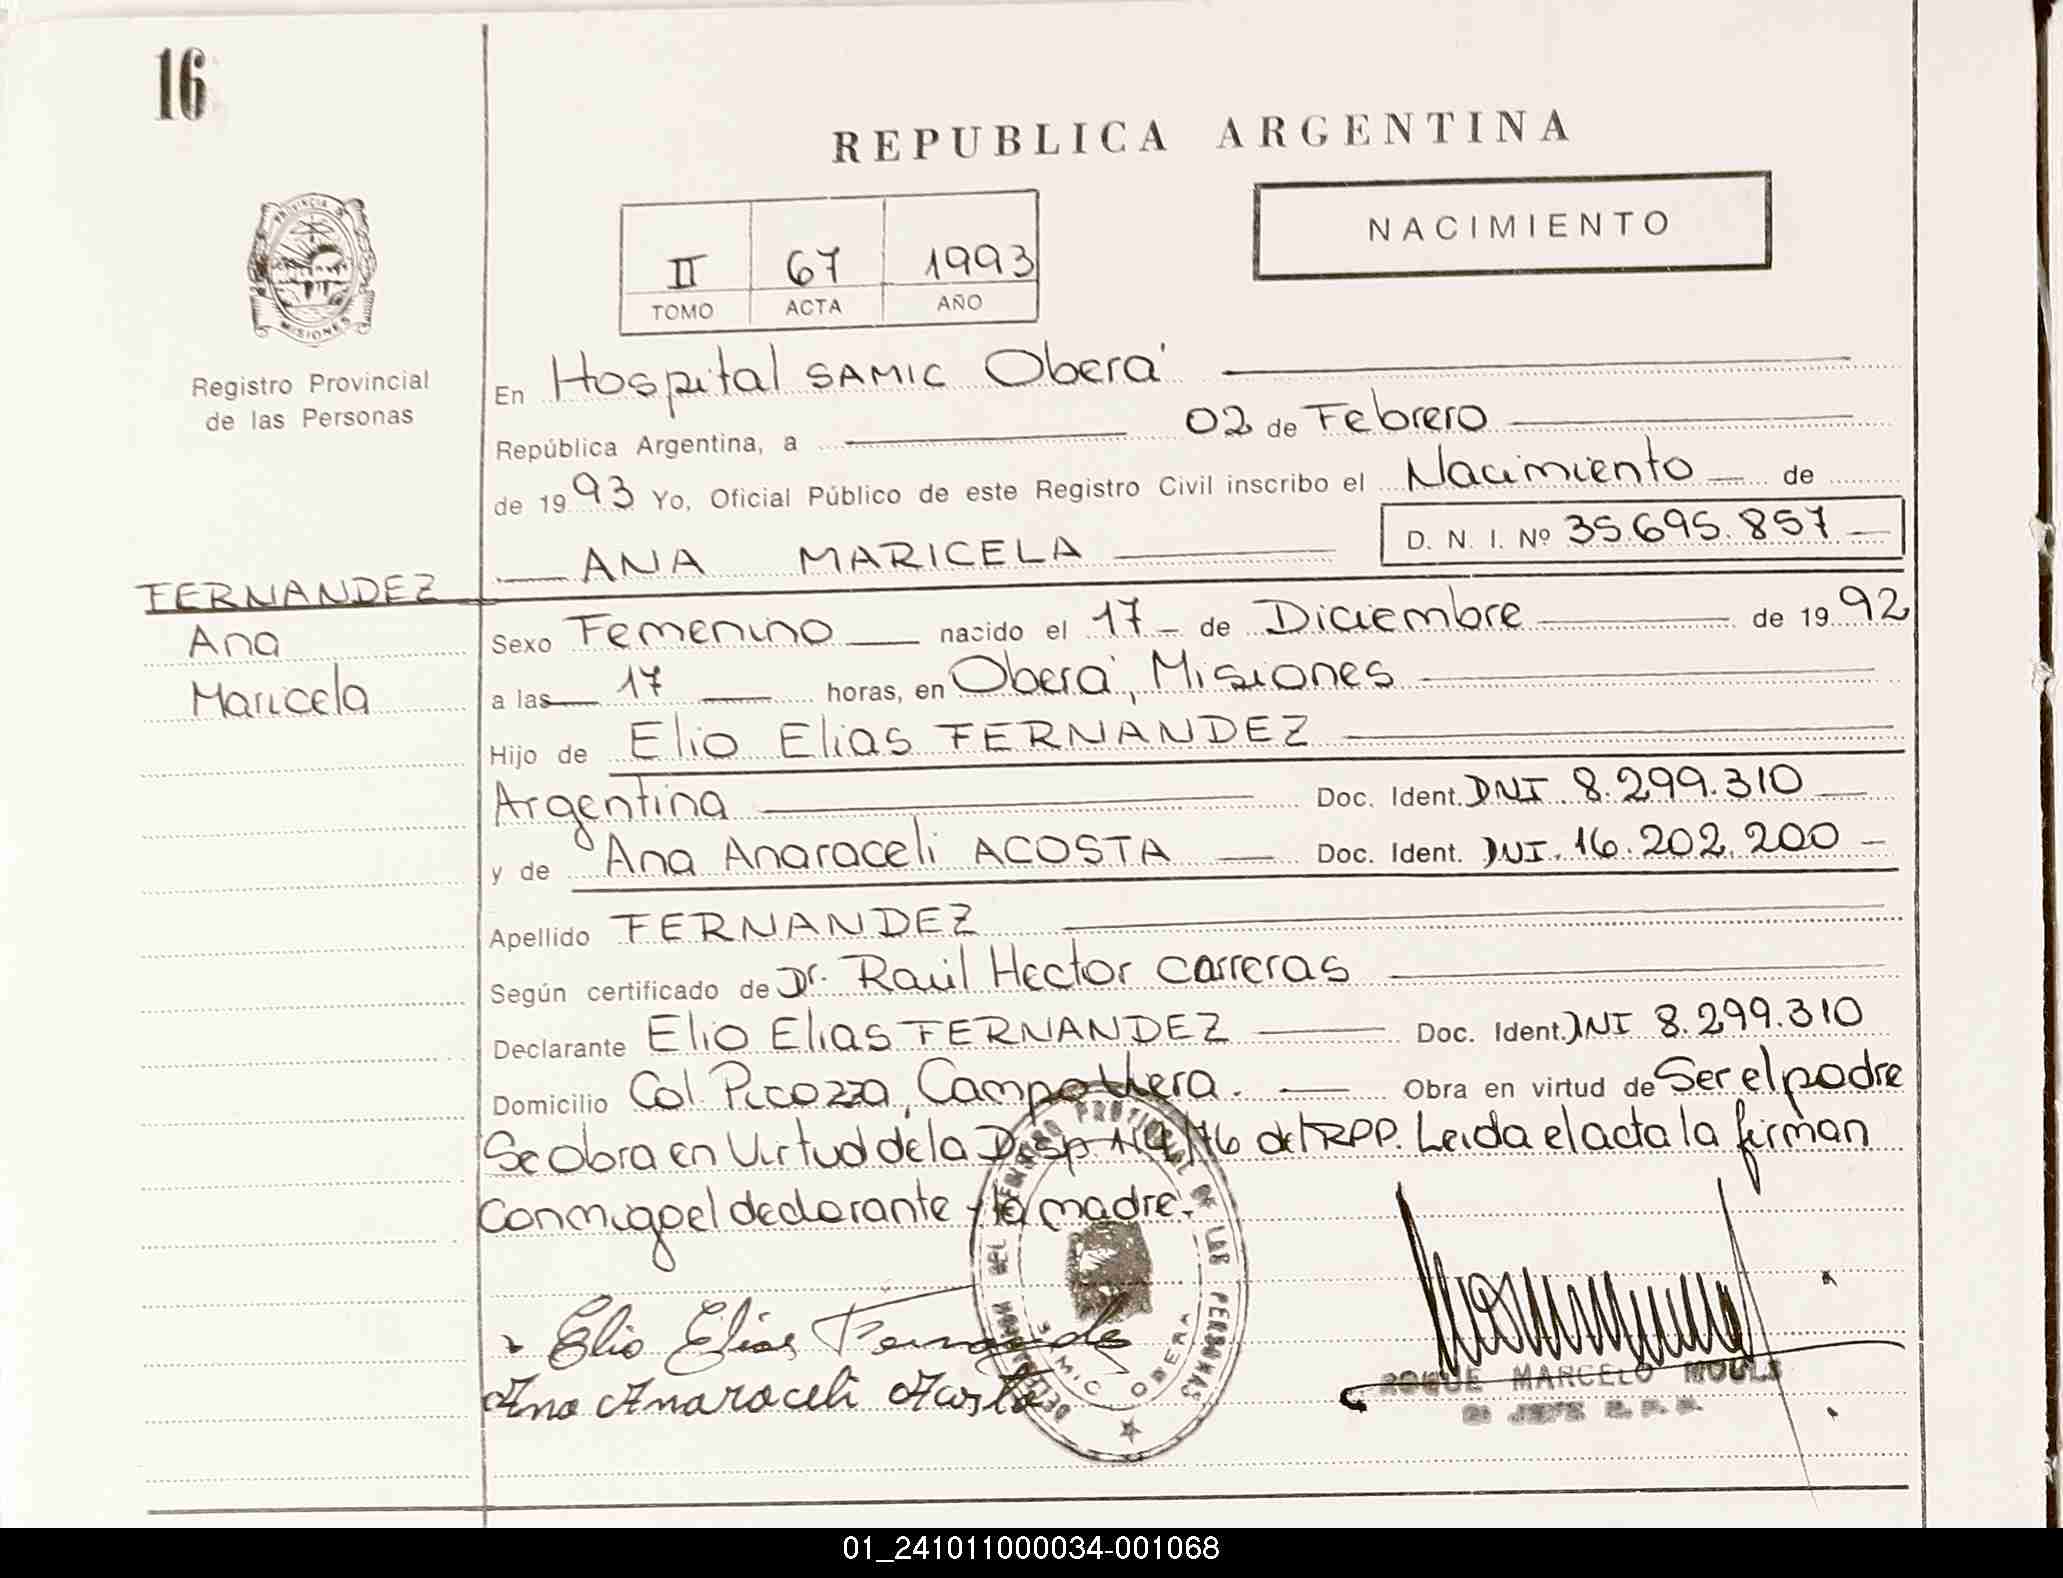 16
REPUBLICA ARGENTINA
NACIMIENTO
II 67 1993
TOMO ACTA AÑO
PROVINCIA DE MISIONES
Registro Provincial
de las Personas
En Hospital SAMIC Oberá
República Argentina, a 02 de Febrero
de 1993 Yo, Oficial Público de este Registro Civil inscribo el Nacimiento de
ANA MARICELA D. N. I. Nº 35.695.857
FERNANDEZ
Ana
Maricela
Sexo Femenino nacido el 17 de Diciembre de 1992
a las 17 horas, en Oberá, Misiones
Hijo de Elio Elias FERNANDEZ
Argentina Doc. Ident. DNI 8.299.310
y de Ana Anaraceli ACOSTA Doc. Ident. DNI. 16.202.200
Apellido FERNANDEZ
Según certificado de Dr. Raúl Hector Carreras
Declarante Elio Elias FERNANDEZ Doc. Ident. DNI 8.299.310
Domicilio Col. Picozza, Campo Viera. Obra en virtud de Ser el padre
Se obra en Virtud de la Disp. /76 del RPP. Leida el acta la firman
Conmigo el declarante y la madre.
Elio Elias Fernandez
Ana Anaraceli Acosta
DEL REGISTRO PROVINCIAL DE LAS PERSONAS
SAMIC OBERA
ROQUE MARCELO MOULS
JEFE R. P. P.
01_241011000034-001068